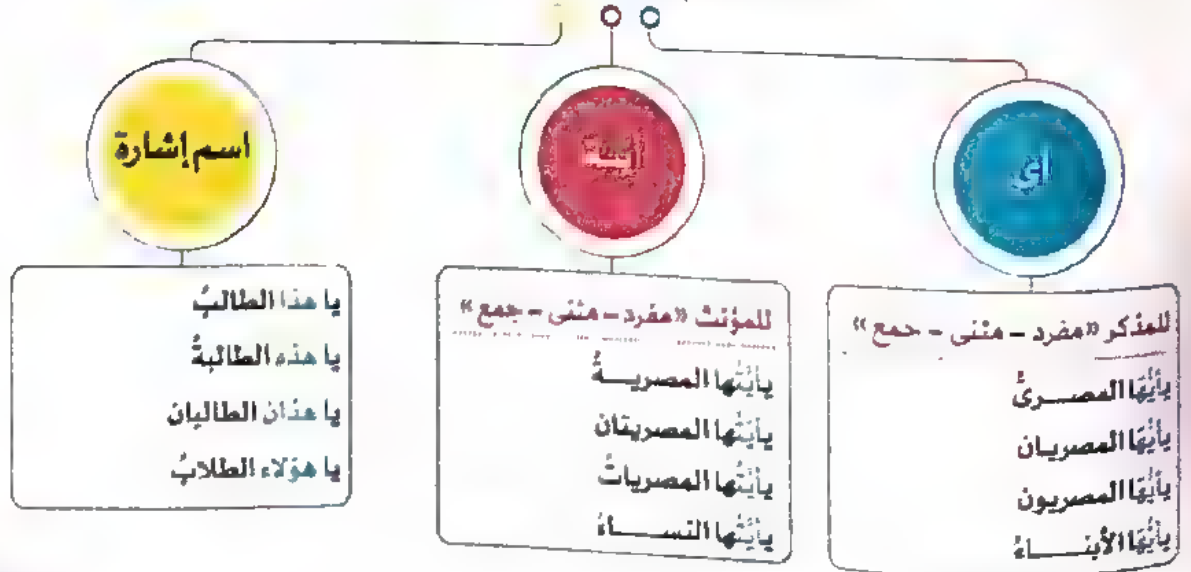 أي
للمذكر «مفرد – مثنى – جمع»
يأيُّها المصـــرىُّ
يأيُّها المصريـان
يأيُّها المصريون
يأيُّها الأبنـــاءُ
أية
للمؤنث «مفرد – مثنى – جمع»
يأيَّتُها المصريـــةُ
يأيَّتُها المصريتان
يأيَّتُها المصرياتُ
يأيَّتُها النســـاءُ
اسم إشارة
يا هذا الطالبُ
يا هذه الطالبةُ
يا هذان الطالبان
يا هؤلاء الطلابُ